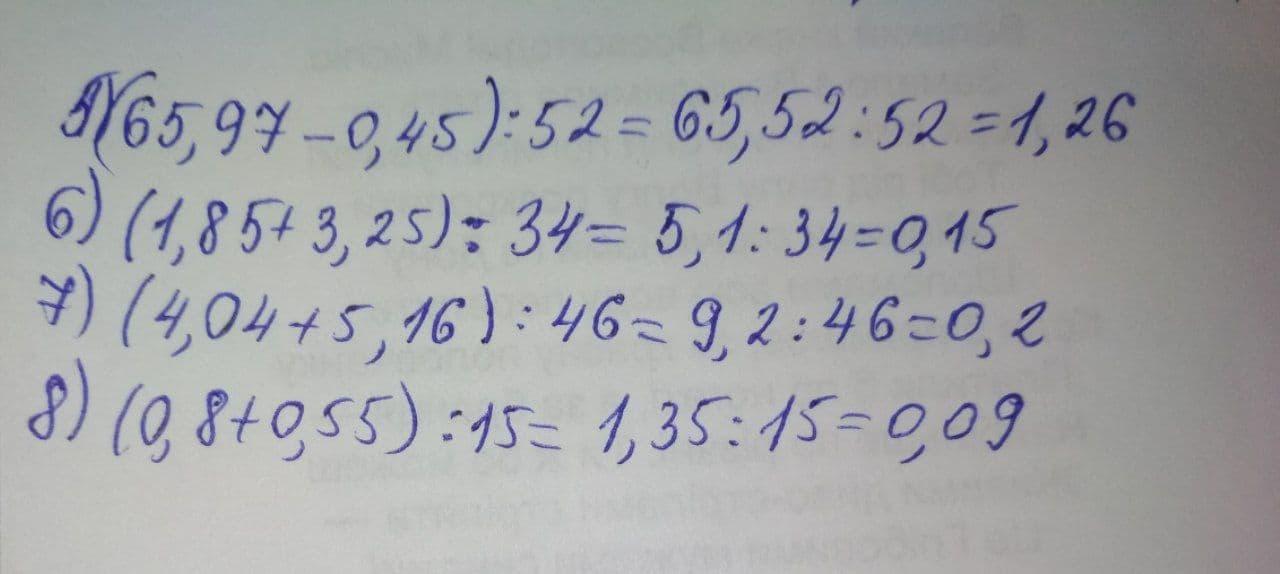 5) (65,97 - 0,45) : 52 = 65,52 : 52 = 1,26
6) (1,85 + 3,25) : 34 = 5,1 : 34 = 0,15
7) (4,04 + 5,16) : 46 = 9,2 : 46 = 0,2
8) (0,8 + 0,55) : 15 = 1,35 : 15 = 0,09